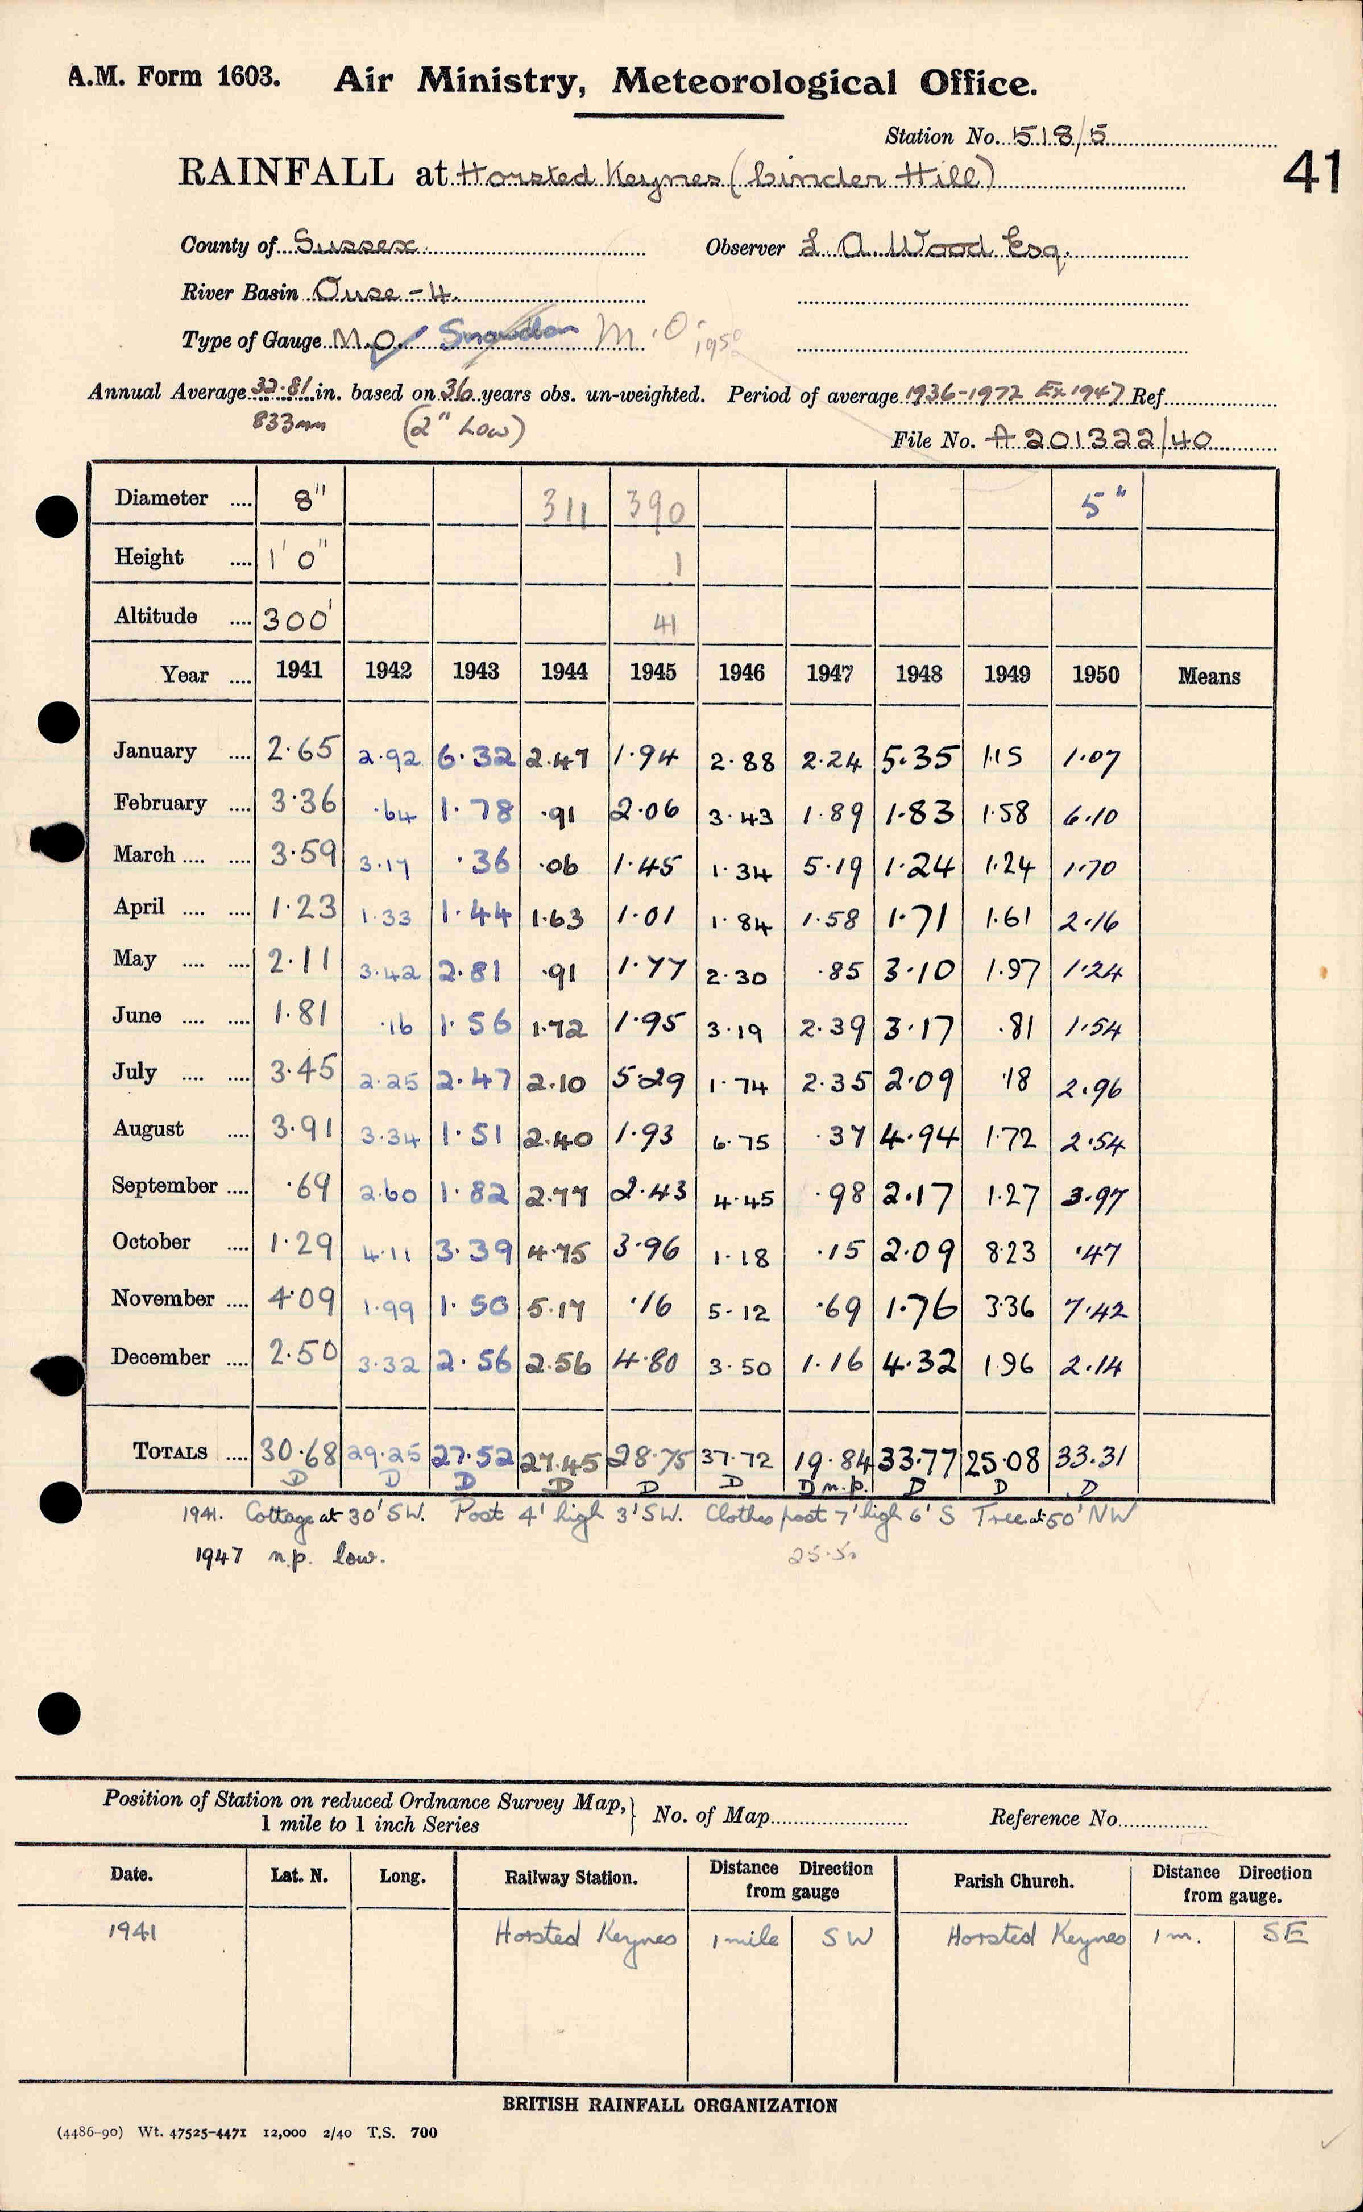 A.M. Form 1603. Air Ministry, Meteorological Office.
Station No. 518/5
41
RAINFALL at Horsted Keynes (Cinder Hill)
County of Sussex. Observer L. A. Wood Esq.
River Basin Ouse - 4.
Type of Gauge M.O. Snowdon M.O. 1950
Annual Average 32.81 in. based on 36 years obs. un-weighted. Period of average 1936-1972 Ex 1947 Ref.
833mm (2" Low) File No. A 201322/40
Diameter .... 8" 311 390 5"
Height .... 1' 0" 1
Altitude .... 300' 41
Year .... 1941 1942 1943 1944 1945 1946 1947 1948 1949 1950 Means
January .... 2.65 2.92 6.32 2.47 1.94 2.88 2.24 5.35 1.15 1.07
February .... 3.36 .64 1.78 .91 2.06 3.43 1.89 1.83 1.58 6.10
March .... .... 3.59 3.17 .36 .06 1.45 1.34 5.19 1.24 1.24 1.70
April .... .... 1.23 1.33 1.44 1.63 1.01 1.84 1.58 1.71 1.61 2.16
May .... .... 2.11 3.42 2.81 .91 1.77 2.30 .85 3.10 1.97 1.24
June .... .... 1.81 .16 1.56 1.72 1.95 3.19 2.39 3.17 .81 1.54
July .... .... 3.45 2.25 2.47 2.10 5.29 1.74 2.35 2.09 .18 2.96
August .... 3.91 3.34 1.51 2.40 1.93 6.75 .37 4.94 1.72 2.54
September .... .69 2.60 1.82 2.77 2.43 4.45 .98 2.17 1.27 3.97
October .... 1.29 4.11 3.39 4.75 3.96 1.18 .15 2.09 8.23 .47
November .... 4.09 1.99 1.50 5.17 .16 5.12 .69 1.76 3.36 7.42
December .... 2.50 3.32 2.56 2.56 4.80 3.50 1.16 4.32 1.96 2.14
TOTALS .... 30.68 29.25 27.52 27.45 28.75 37.72 19.84 33.77 25.08 33.31
D D D D D D D n.p. D D D
1941. Cottage at 30' SW. Post 4' high 3' SW. Clothes post 7' high 6' S Tree at 50' NW
1947 n.p. low. 25.50
Position of Station on reduced Ordnance Survey Map, 1 mile to 1 inch Series } No. of Map Reference No.
Date. Lat. N. Long. Railway Station. Distance Direction from gauge Parish Church. Distance Direction from gauge.
1941 Horsted Keynes 1 mile SW Horsted Keynes 1 m. SE
BRITISH RAINFALL ORGANIZATION
(4486-90) Wt. 47525-4471 12,000 2/40 T.S. 700